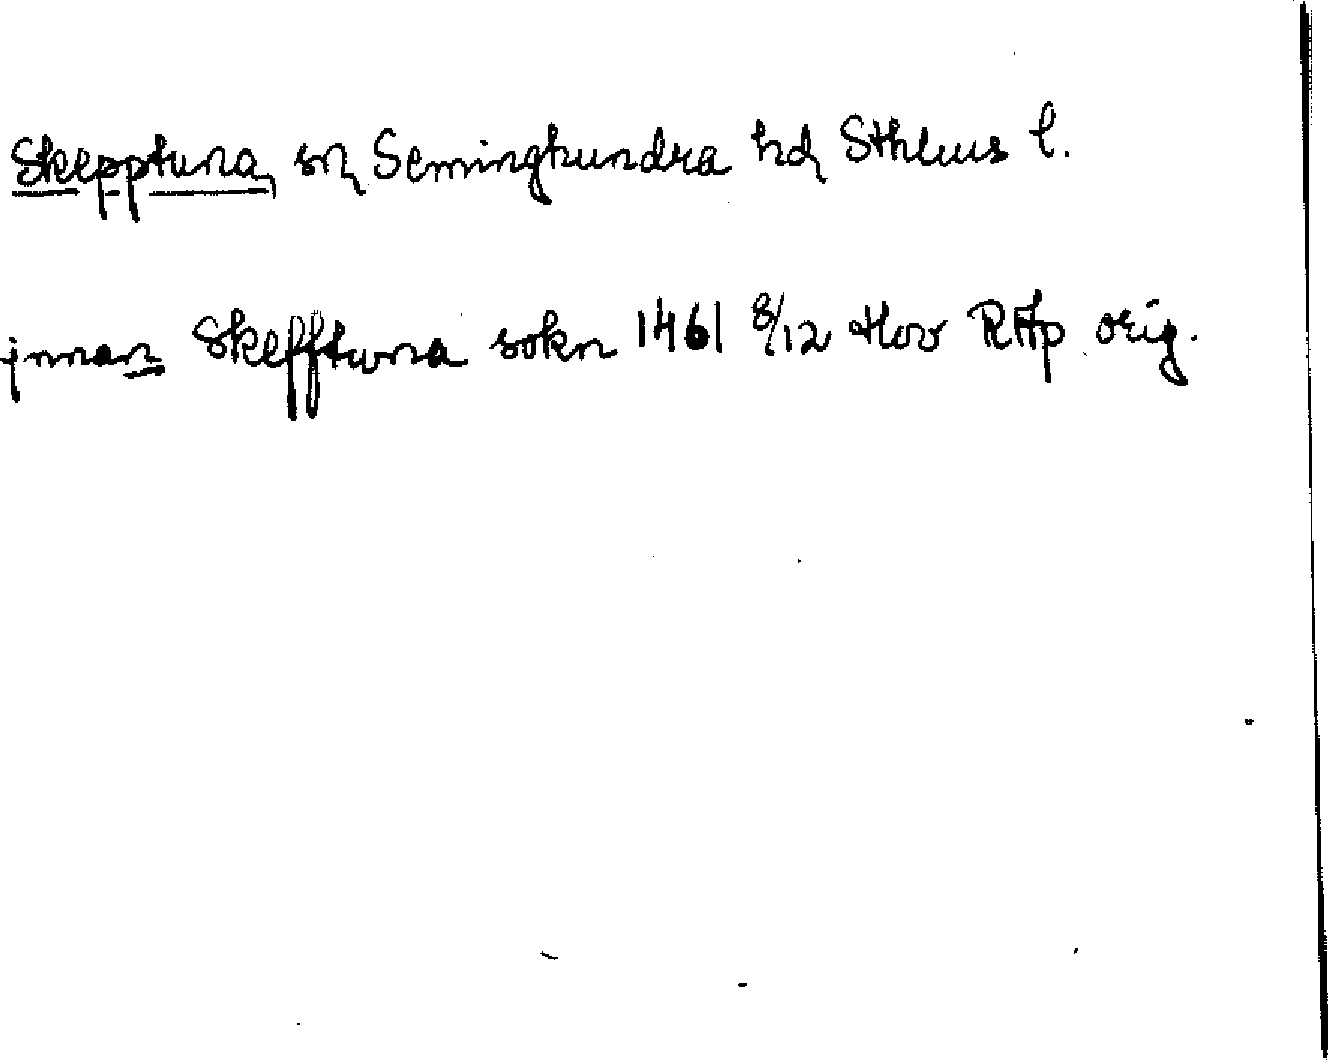 Skepptuna, sn, Seminghundra hd, Sthlms l.
jnnan Skefftuna sokn 1461 8/12 Hov RAp orig.